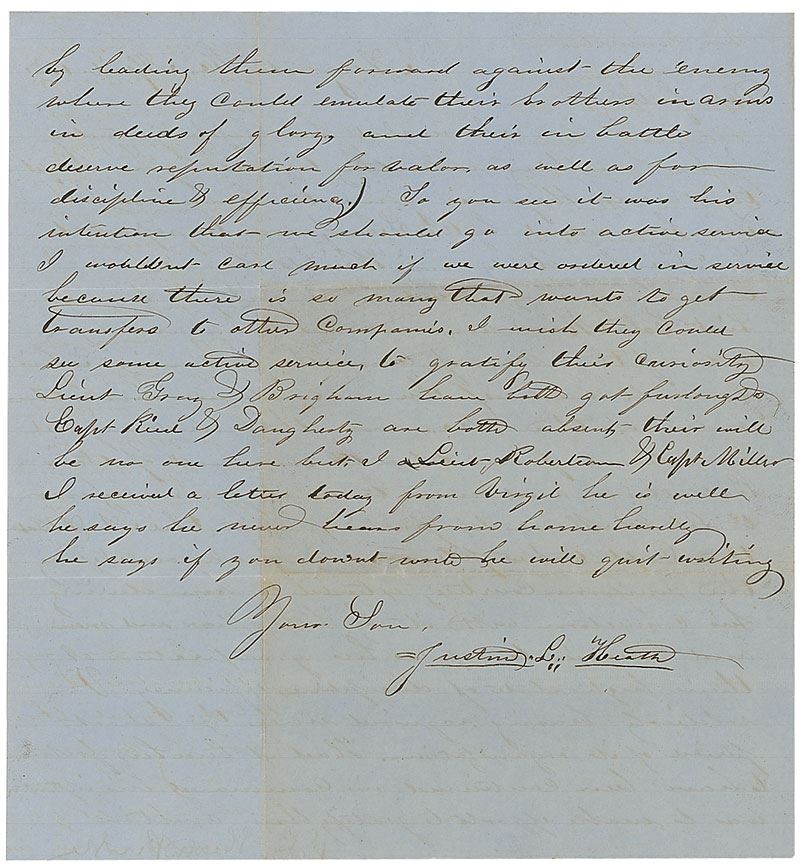 by leading them forward against the enemy
where they could emulate their brothers in arms
in deeds of glory, and their in battle
deserve reputation for valor as well as for
discipline & efficiency.) So you see it was his
intention that we should go into active service
I wouldnt care much if we were ordered in service
because there is so many that wants to get
transfers to other Companies. I wish they could
see some active service, to gratify their curiosity
Lieut Gray & Brigham have both got furloughs
Capt & Daugherty are both absent their will
be no one here but I Lieut, Robertson & Capt. Miller
I received a letter today from Virgil he is well
he says he never hears from home hardly
he says if you dount write he will quit writing
Your Son,
Justin, L,, Heath